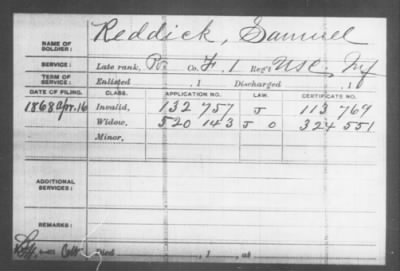 NAME OF SOLDIER: Reddick, Samuel
SERVICE: Late rank, P. Co. F, 1 Reg't USC, Inf
TERM OF SERVICE: Enlisted , 1 Discharged , 1
DATE OF FILING. CLASS. APPLICATION NO. LAW. CERTIFICATE NO.
1868 Apr. 16 Invalid, 132 757 J 113 769
Widow, 520 143 J O 324 551
Minor,
ADDITIONAL SERVICES:
REMARKS:
Died , 1 , at